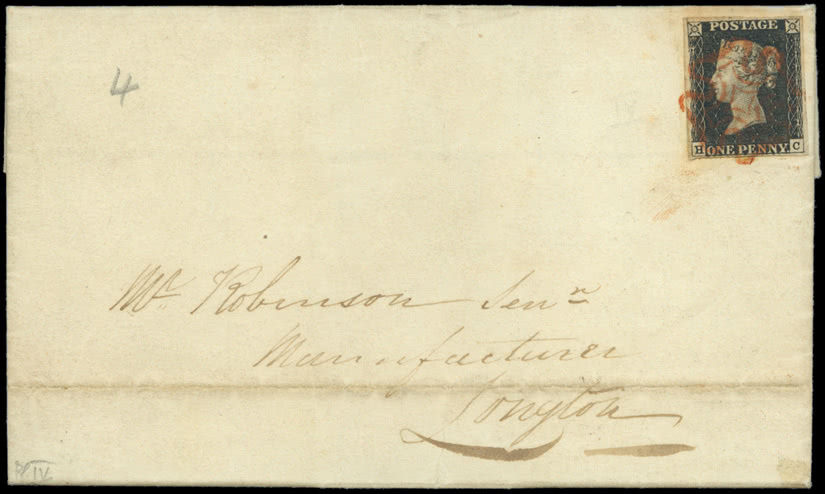 POSTAGE
4
H ONE PENNY. C
Mr. Robinson Senr
Manufacturer
Longton
IV.